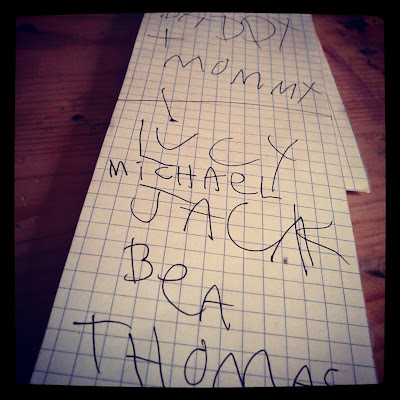 DADDY
+
MOMMY
LUCY
MICHAEL
JACK
BeA
THOMAS